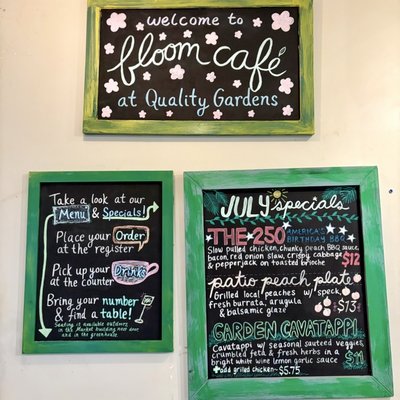 welcome to
bloom café
at Quality Gardens
Take a look at our
Menu & Specials!
Place your Order
at the register
Pick up your Drinks
at the counter
Bring your number
& find a table!
Seating is available outdoors,
in the Market building next door
and in the greenhouse
JULY specials
THE 250 AMERICA'S BIRTHDAY BBQ
Slow pulled chicken, chunky peach BBQ sauce $12
bacon, red onion slaw, crispy cabbage
& pepperjack on toasted brioche
patio peach plate
Grilled local peaches w/ speck,
fresh burrata, arugula
& balsamic glaze $13
GARDEN CAVATAPPI
Cavatappi w/ seasonal sauteed veggies,
crumbled feta & fresh herbs in a
bright white wine lemon garlic sauce $11
add grilled chicken ~ $5.75